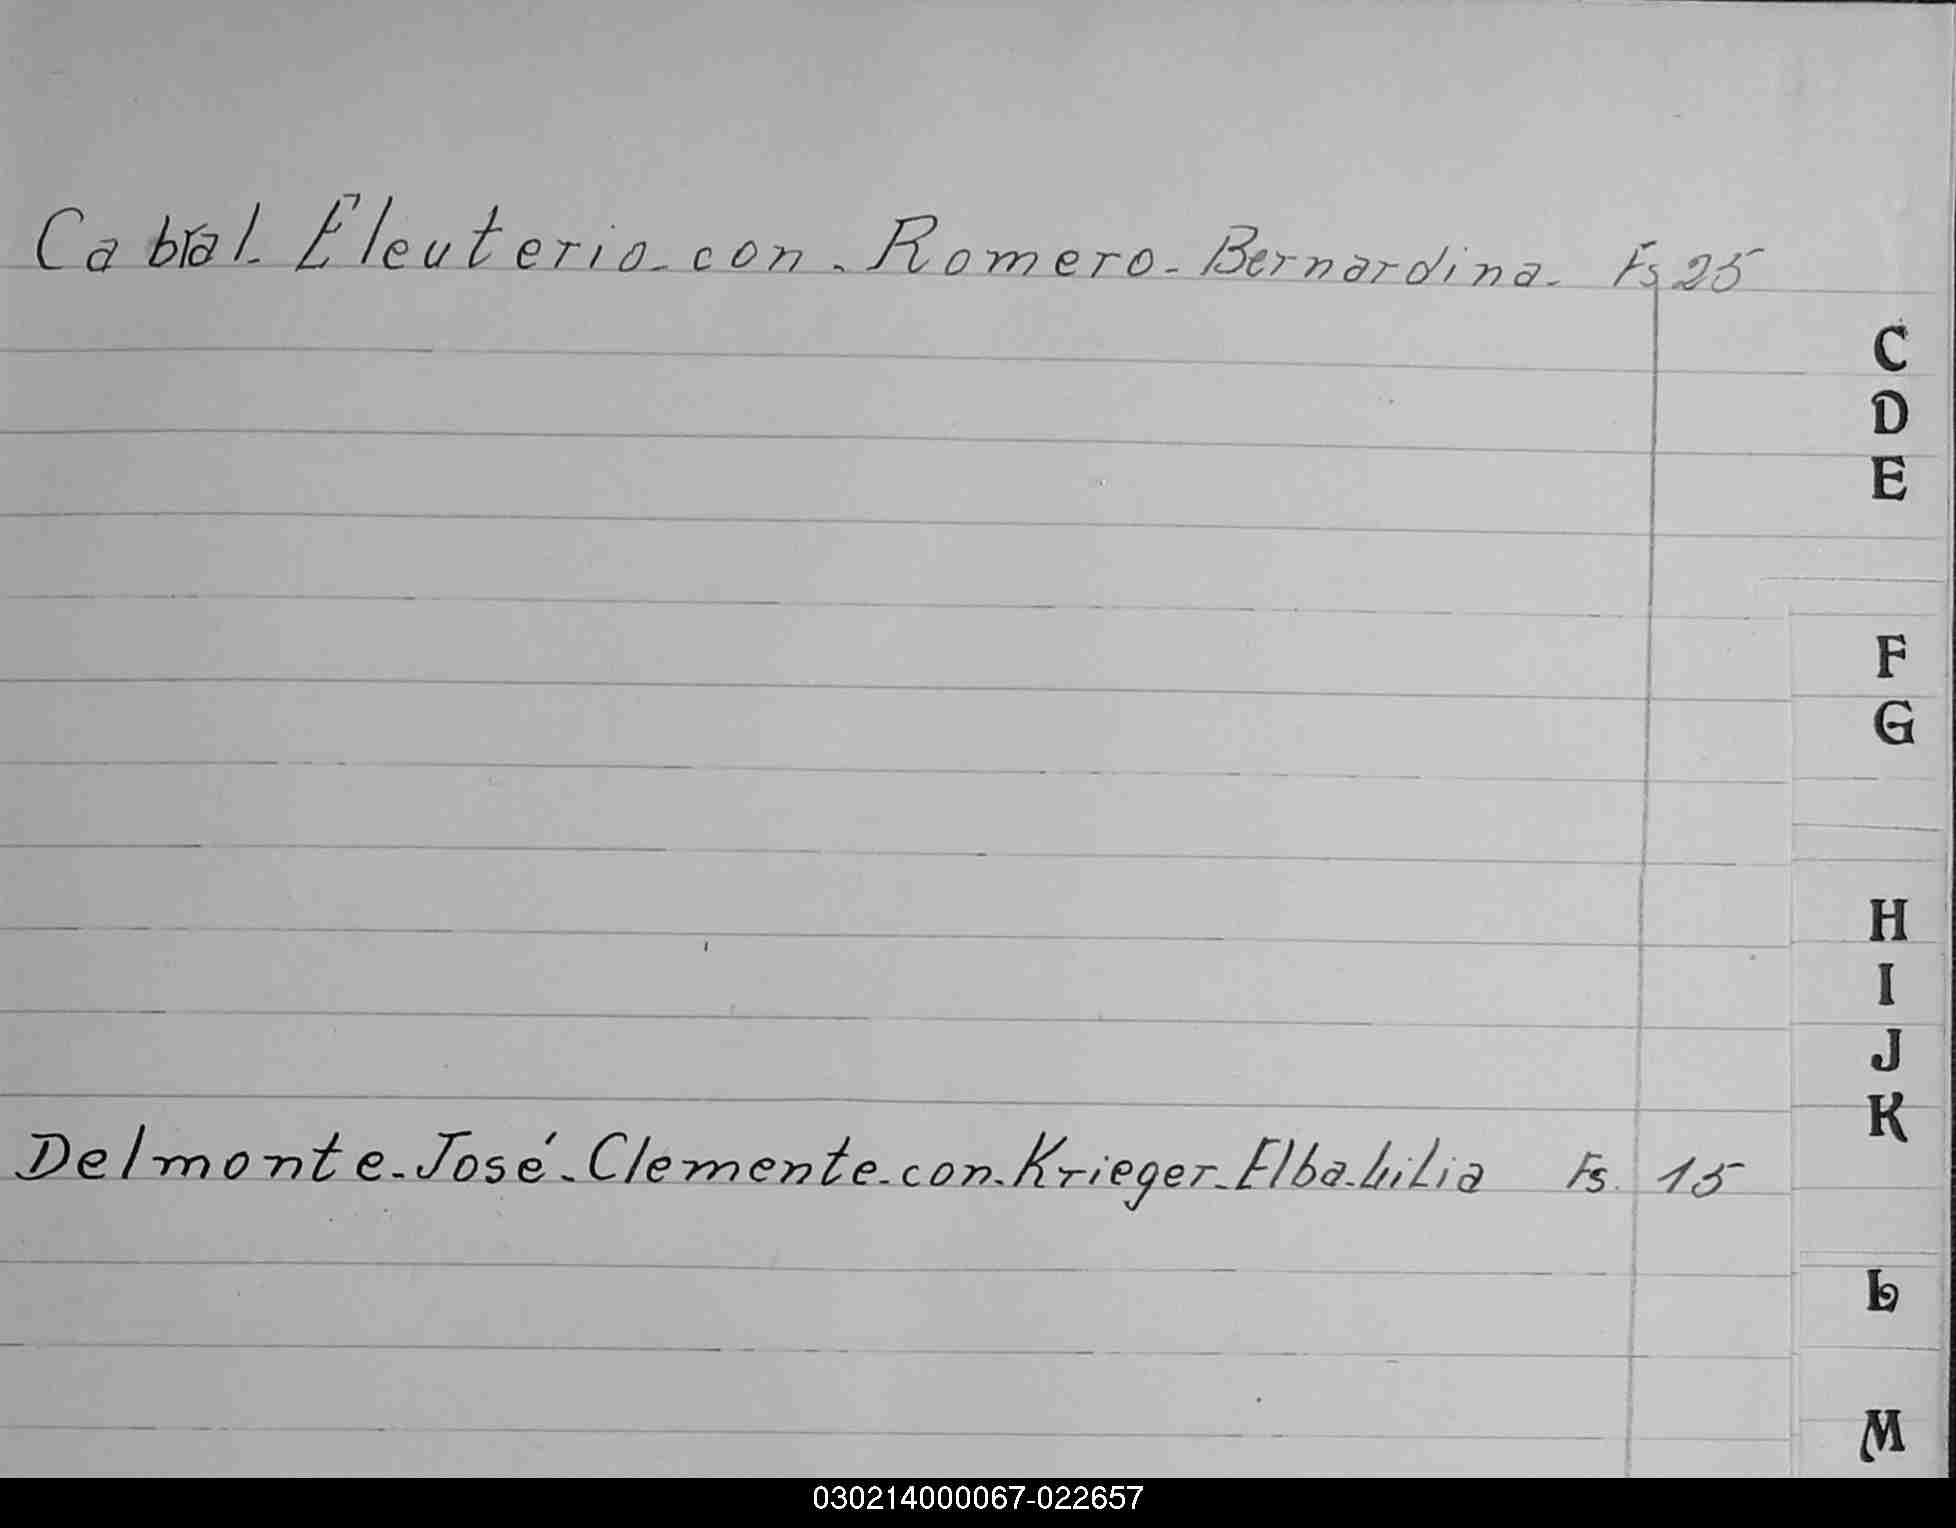 Cabral. Eleuterio-con-Romero-Bernardina- Fs 25
C
D
E
F
G
H
I
J
K
Delmonte-José-Clemente-con-Krieger-Elba-Lilia Fs. 15
L
M
030214000067-022657